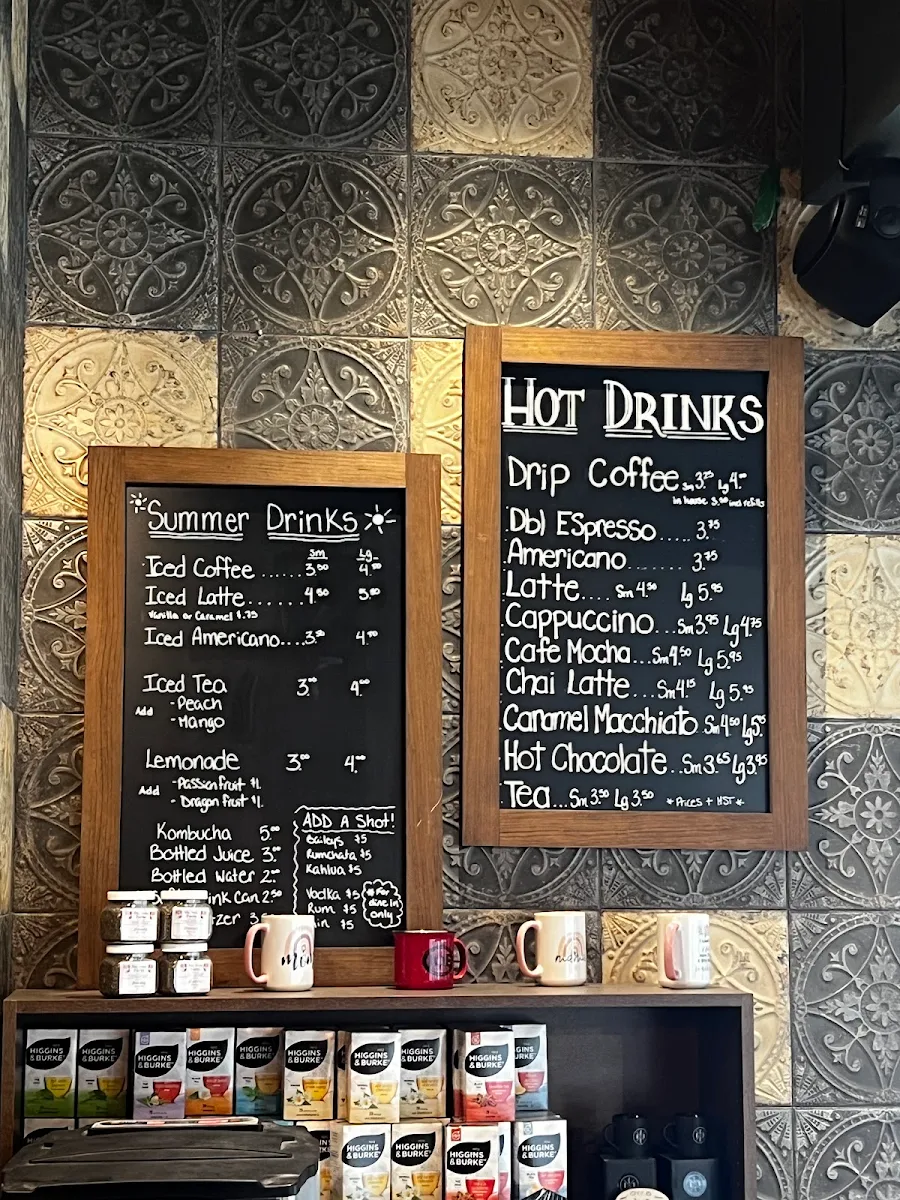 Summer Drinks
Sm Lg
Iced Coffee ...... 3.50 4.50
Iced Latte....... 4.50 5.50
Vanilla or Caramel $.75
Iced Americano... 4.00
Iced Tea 3.00 4.00
Add -Peach
-Mango
Lemonade 3.00 4.00
Add -Passionfruit $1.
- Dragon fruit $1.
Kombucha 5.00
Bottled Juice 3.00
Bottled Water 2.00
ink Can 2.50
zer
ADD A Shot!
Baileys $5
Rumchata $5
Kahlua $5
Vodka $5
Rum $5
in $5
* For
dine in
only
HOT DRINKS
Drip Coffee Sm 3.25 Lg 4.00
in house 3.50 incl refills
Dbl Espresso..... 3.75
Americano........ 3.75
Latte.... Sm 4.50 Lg 5.95
Cappuccino... Sm 3.95 Lg 4.75
Cafe Mocha... Sm 4.50 Lg 5.95
Chai Latte... Sm 4.15 Lg 5.95
Caramel Macchiato Sm 4.50 Lg 5.95
Hot Chocolate.. Sm 3.65 Lg 3.95
Tea... Sm 3.50 Lg 3.50 *Prices + HST*
HIGGINS
&BURKE
HIGGINS
&BURKE
HIGGINS
&BURKE
HIGGINS
&BURKE
HIGGINS
&BURKE
HIGGINS
&BURKE
HIGGINS
&BURKE
HIGGINS
&BURKE
HIGGINS
&BURKE
HIGGINS
&BURKE
HIGGINS
&BURKE
HIGGINS
&BURKE
HIGGINS
&BURKE